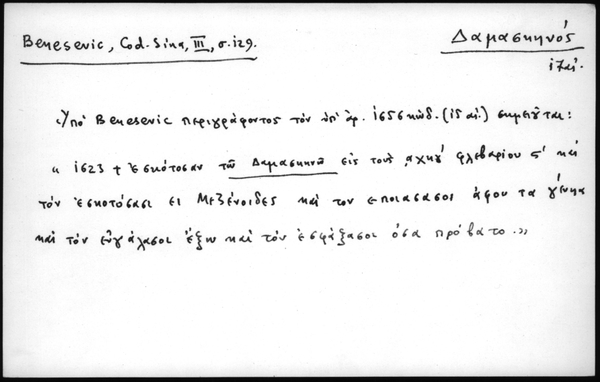 Benesevic, Cod. Sina, III, σ. 129.
Δαμασκηνός
17 αἰ.
Ὑπό Benesevic περιγράφοντος τόν ὑπ' ἀρ. 1656 κώδ. (15 αἰ.) σημειοῦται:
« 1623 + Ἐσκότοσαν τῶ Δαμασκηνῶ εἰς τούς αχκγ' φλεβαρίου 5' καί
τόν ἐσκοτόσασι ει Μεζένοιδες καί τον εποιασασοι άφου τα γένηα
καί τόν εὐγάλασοι ἔξω καί τόν ἐσφάξασοι όσα πρόβατο. »